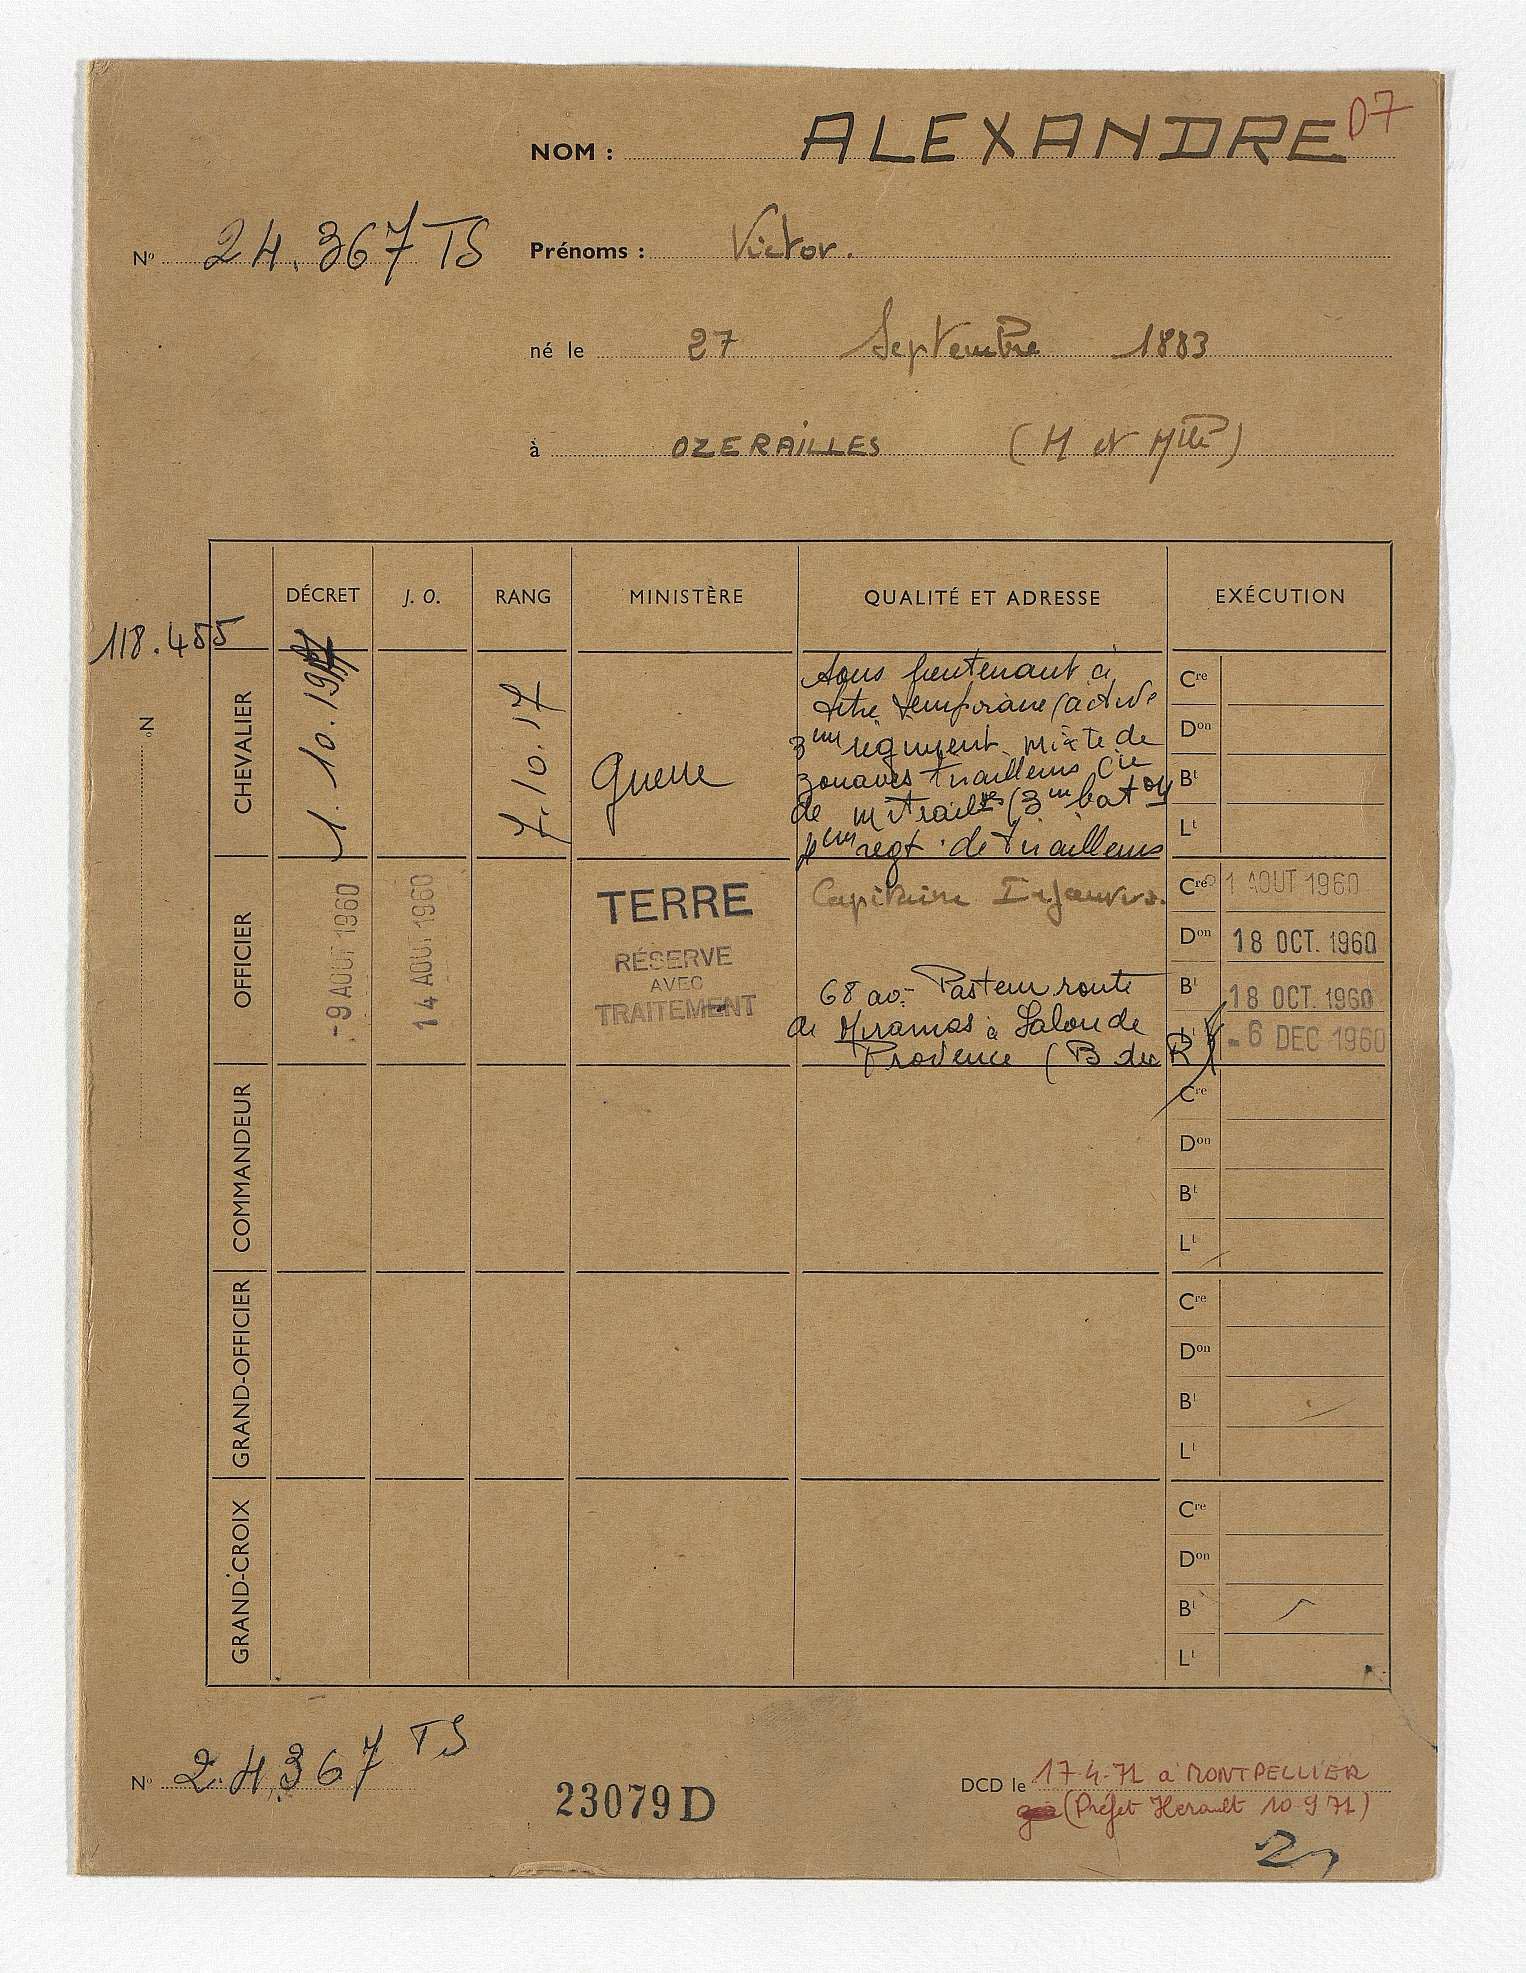 NOM : ALEXANDRE D7
N° 24.367 TS Prénoms : Victor.
né le 27 Septembre 1883
à OZERAILLES (M et Mlle)
DÉCRET J. O. RANG MINISTÈRE QUALITÉ ET ADRESSE EXÉCUTION
118.455
N°
CHEVALIER
1.10.1917
7.10.17
Guerre
sous lieutenant à
titre temporaire (active
3me régiment mixte de
zouaves tirailleurs Cie
de mitrailles (3me baton
regt. de tirailleurs
Cre
Don
Bt
Lt
OFFICIER
-9 AOUT 1960
14 AOUT 1960
TERRE
RÉSERVE
AVEC
TRAITEMENT
Capitaine Infanterie.
68 av. Pasteur route
de Miramas à Salon de
Provence (B du R)
Cre 1 AOUT 1960
Don 18 OCT. 1960
Bt 18 OCT. 1960
Lt - 6 DEC 1960
COMMANDEUR
Cre
Don
Bt
Lt
GRAND-OFFICIER
Cre
Don
Bt
Lt
GRAND-CROIX
Cre
Don
Bt
Lt
N° 24.367 TS
23079 D
DCD le 17-4-71 à MONTPELLIER
(Préfet Herault 10 9 71)